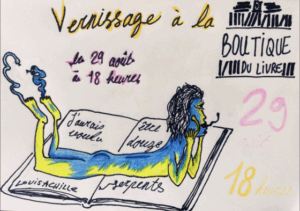 Vernissage à la
BOUTIQUE
DU LIVRE
le 29 août
à 18 heures
29
J'aurais
voulu
être
douze
LOUIS ACHILLE
serpents
18 heures